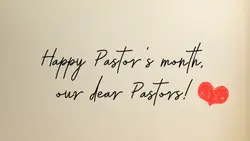 Happy Pastor's month,
our dear Pastors!